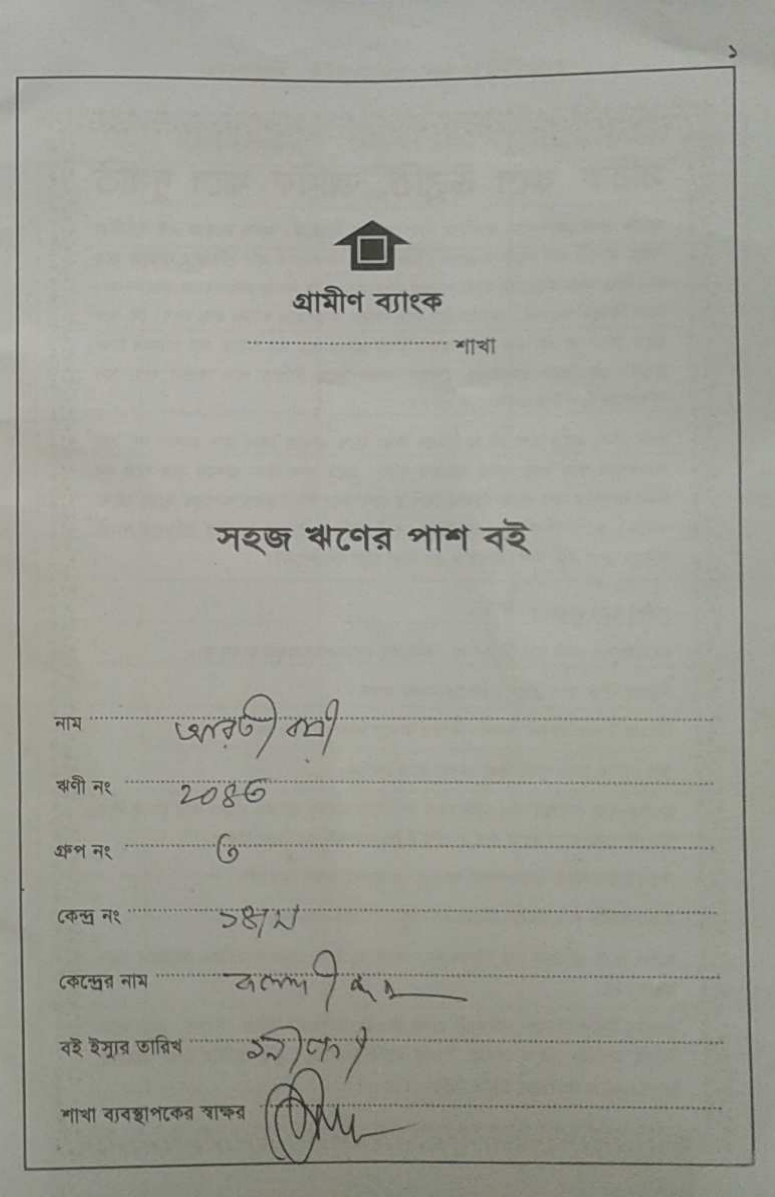 ১
গ্রামীণ ব্যাংক
শাখা
সহজ ঋণের পাশ বই
নাম আরতী রানী
ঋণী নং ২০৪৩
গ্রুপ নং ৩
কেন্দ্র নং
কেন্দ্রের নাম
বই ইস্যুর তারিখ
শাখা ব্যবস্থাপকের স্বাক্ষর